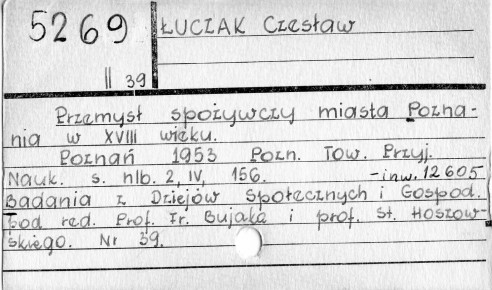 5269
II 39
ŁUCZAK Czesław
Przemysł spożywczy miasta Pozna-
nia w XVIII wieku.
Poznań 1953 Pozn. Tow. Przyj.
Nauk. s. nlb. 2, IV, 156. - inw. 12605
Badania z Dziejów Społecznych i Gospod.
pod red. Prof. Fr. Bujaka i prof. St. Hoszow-
skiego. Nr 39.